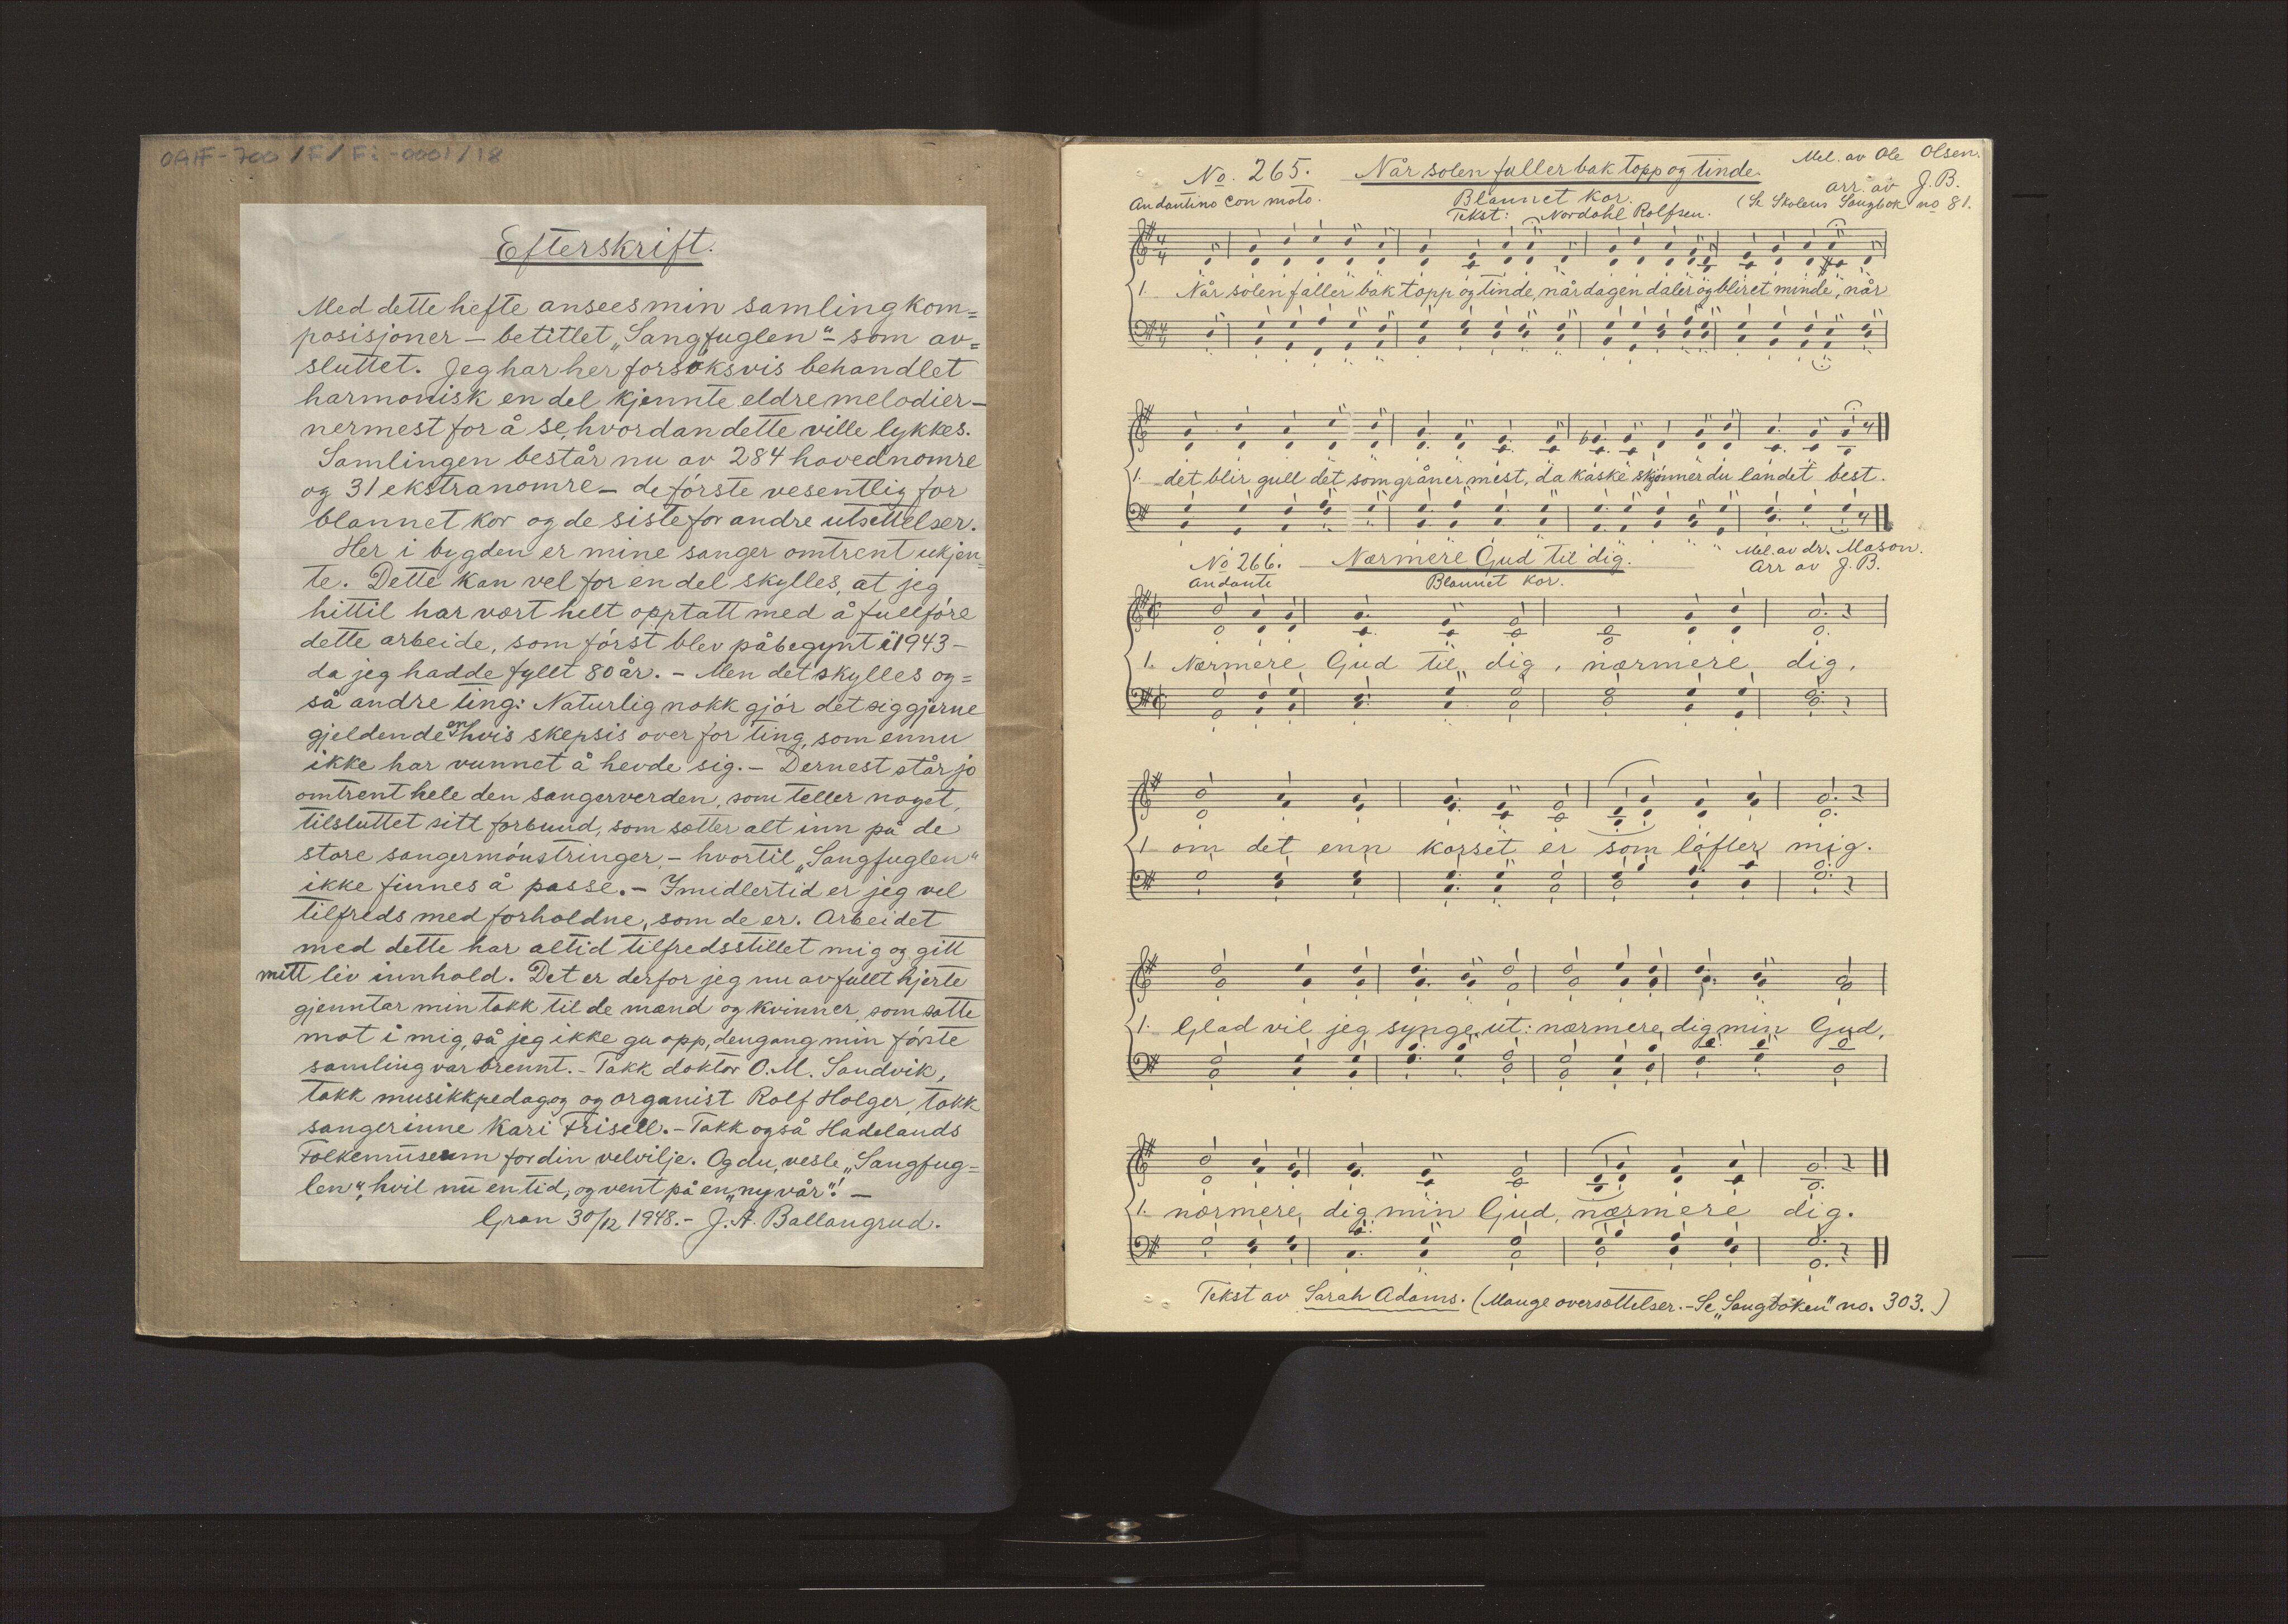 OAHF-700/F/Fi-0001/18
Efterskrift.
Med dette hefte ansees min samling kom=
posisjoner – betitlet „Sangfuglen“ – som av=
sluttet. Jeg har her forsøksvis behandlet
harmonisk en del kjennte eldre melodier –
nermest for å se, hvordan dette ville lykkes.
Samlingen består nu av 284 hovednomre
og 31 ekstranomre – de første vesentlig for
blannet kor og de siste for andre utsettelser.
Her i bygden er mine sanger omtrent ukjen=
te. Dette kan vel for en del skylles, at jeg
hittil har vært helt opptatt med å fullføre
dette arbeide, som først blev påbegynt i 1943 –
da jeg hadde fyllt 80 år. – Men det skylles og=
så andre ting: Naturlig nokk gjør det sig gjerne
gjeldende en hvis skepsis over for ting, som ennu
ikke har vunnet å hevde sig. – Dernest står jo
omtrent hele den sangerverden, som teller noget,
tilsluttet sitt forbund, som sætter alt inn på de
store sangermønstringer, – hvortil „Sangfuglen“
ikke finnes å passe. – Imidlertid er jeg vel
tilfreds med forholdne, som de er. Arbeidet
med dette har altid tilfredsstillet mig og gitt
mitt liv innhold. Det er derfor jeg nu av fullt hjerte
gjenntar min takk til de mænd og kvinner, som satte
mot i mig, så jeg ikke ga opp, dengang min første
samling var brennt. – Takk doktor O. M. Sandvik,
takk musikkpedagog og organist Rolf Holger, takk
sangerinne Kari Frisell. – Takk også Hadelands
Folkemuseum for din velvilje. Og du, vesle „Sangfug=
len“, hvil nu en tid, og vent på en „ny vår“! –
Gran 30/12 1948. – J. A. Ballangrud.
No. 265. Når solen faller bak topp og tinde. Mel. av Ole Olsen.
arr. av J. B.
Andantino con moto. Blannet kor. (Se Skolens Sangbok no 81.
Tekst: Nordahl Rolfsen.
1. Når solen faller bak topp og tinde, når dagen daler og bliret minde, når
1. det blir gull det som gråner mest, da kaske skjønner du landet best.
No 266. – Nærmere Gud til dig. Mel. av dr. Mason.
Andante Blannet kor. Arr av J. B.
1. Nærmere Gud til dig, nærmere dig,
1 om det enn korset er som løfter mig.
1. Glad vil jeg synge ut: nærmere dig min Gud,
1. nærmere dig min Gud, nærmere dig.
Tekst av Sarah Adams. (Mange oversættelser. – Se „Sangboken“ no. 303.)